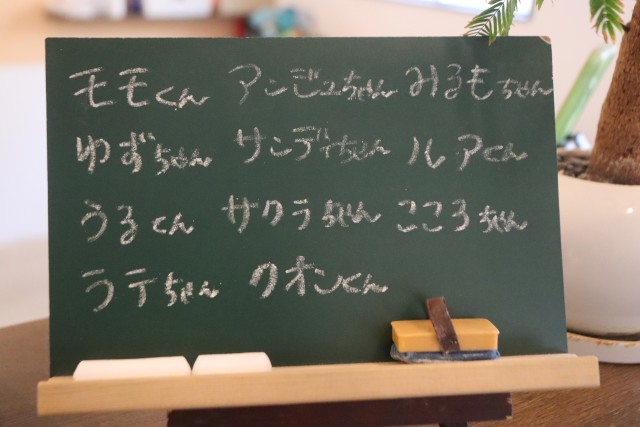 モモくん アンジュちゃん みるもちゃん
ゆずちゃん サンディちゃん ルアくん
うるくん サクラちゃん こころちゃん
ラテちゃん クオンくん